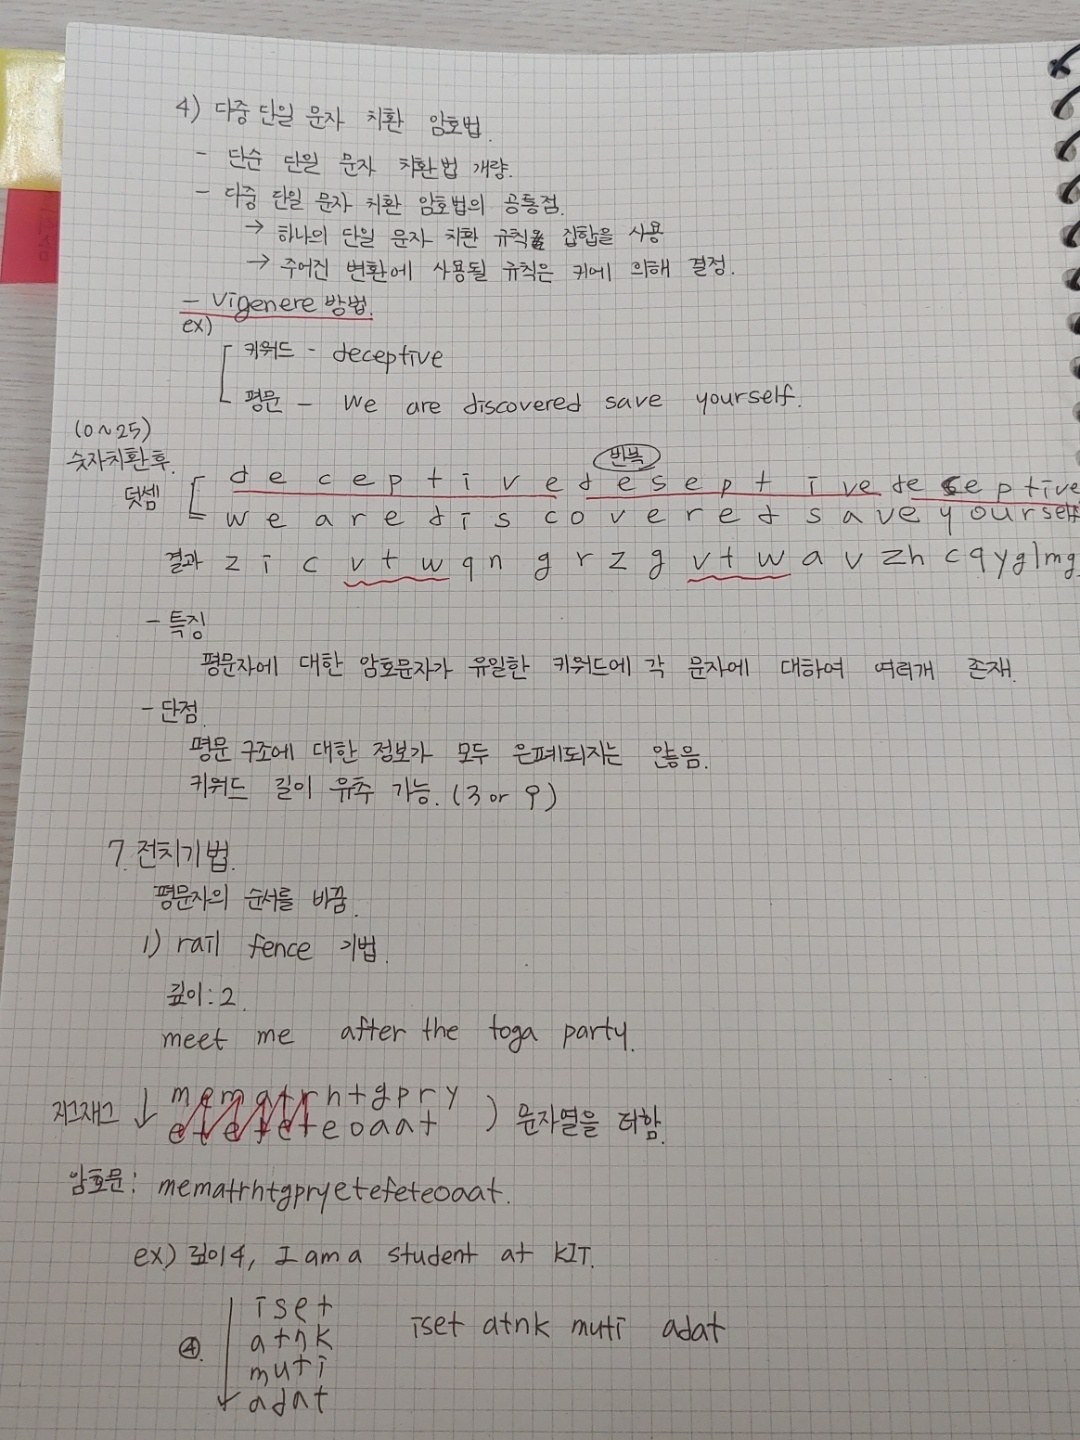 4) 다중 단일 문자 치환 암호법.
- 단순 단일 문자 치환법 개량.
- 다중 단일 문자 치환 암호법의 공통점.
→ 하나의 단일 문자 치환 규칙 집합을 사용
→ 주어진 변환에 사용될 규칙은 키에 의해 결정.
- vigenere 방법.
ex)
키워드 - deceptive
평문 - we are discovered save yourself.
(0~25)
숫자치환후. 반복
덧셈 d e c e p t i v e d e s e p t i v e d e c e p t i v e
w e a r e d i s c o v e r e d s a v e y o u r s e l f
결과 z i c v t w q n g r z g v t w a v z h c q y g l m g
- 특징
평문자에 대한 암호문자가 유일한 키워드에 각 문자에 대하여 여러개 존재.
- 단점
평문 구조에 대한 정보가 모두 은폐되지는 않음.
키워드 길이 유추 가능. (3 or 9)
7. 전치기법.
평문자의 순서를 바꿈.
1) rail fence 기법.
깊이 : 2.
meet me after the toga party.
m e m a t r h t g p r y
지그재그 ↓ ) 문자열을 더함.
e t e f e t e o a a t
암호문 : mematrhtgpryetefeteoaat.
ex) 깊이 4, I am a student at KIT.
i s e t
a t n k iset atnk muti adat
④. m u t i
a d a t